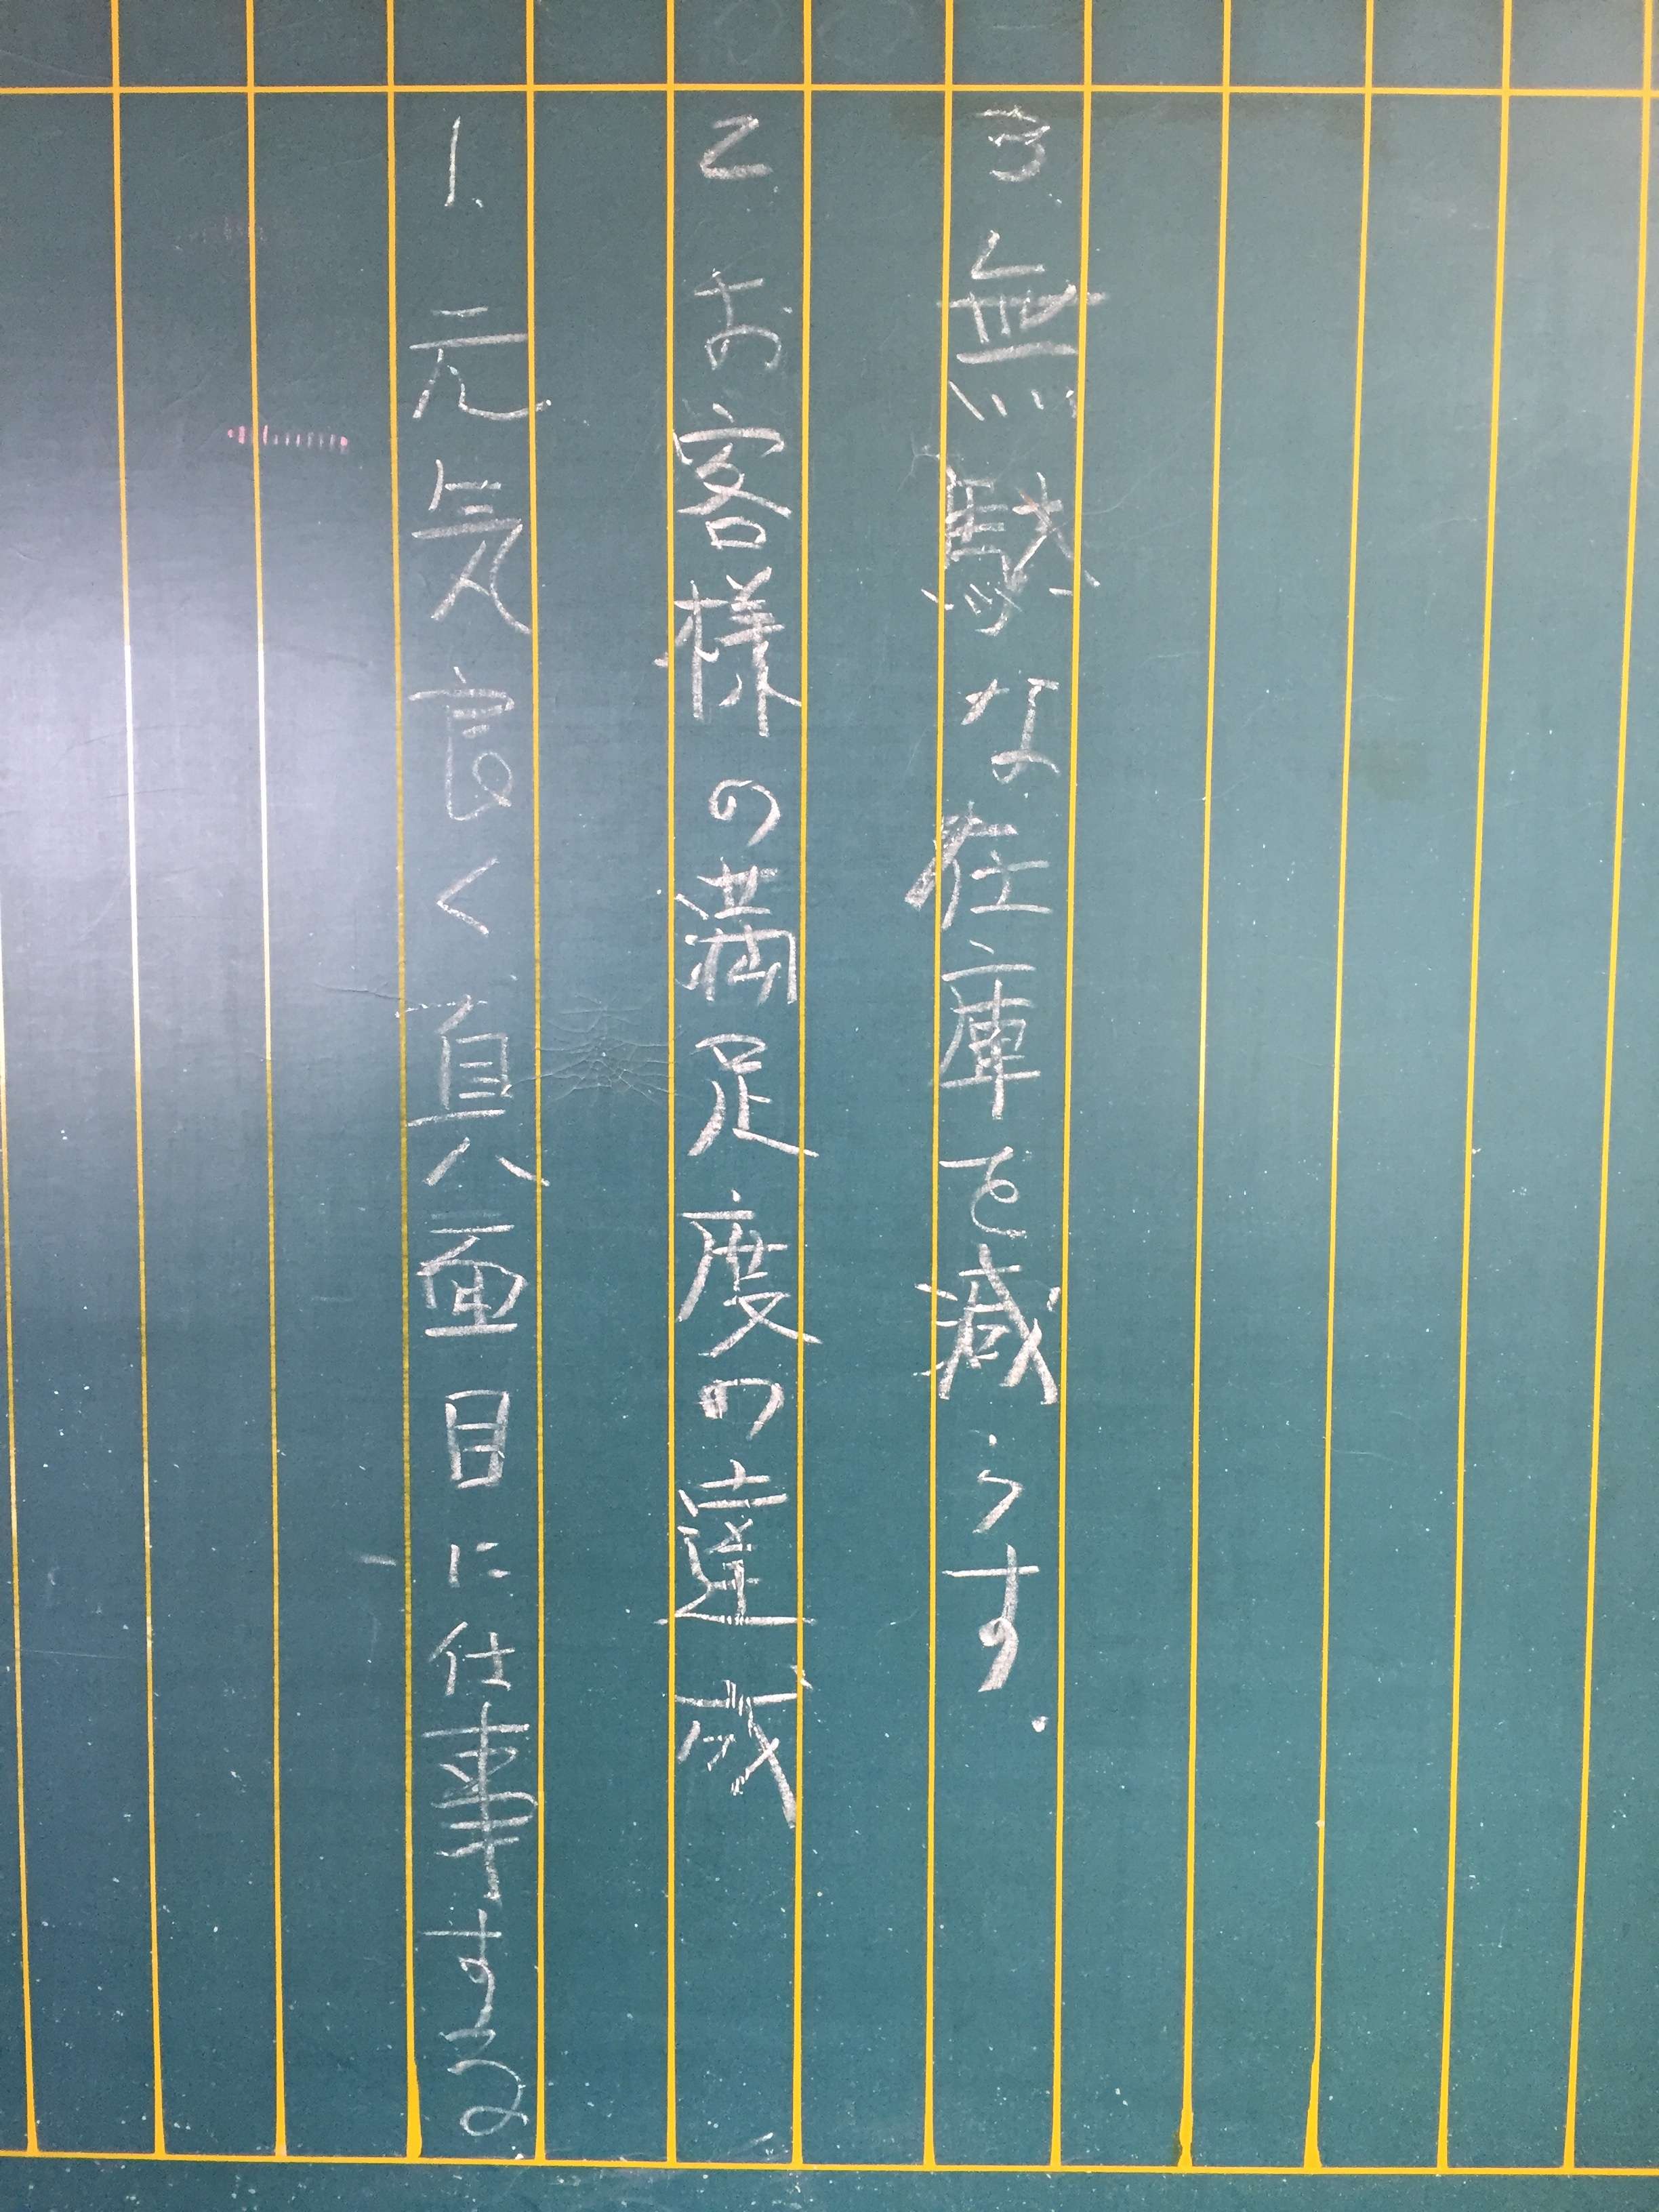 1、元気良く真面目に仕事する
2、お客様の満足度の達成
3、無駄な在庫を減らす.